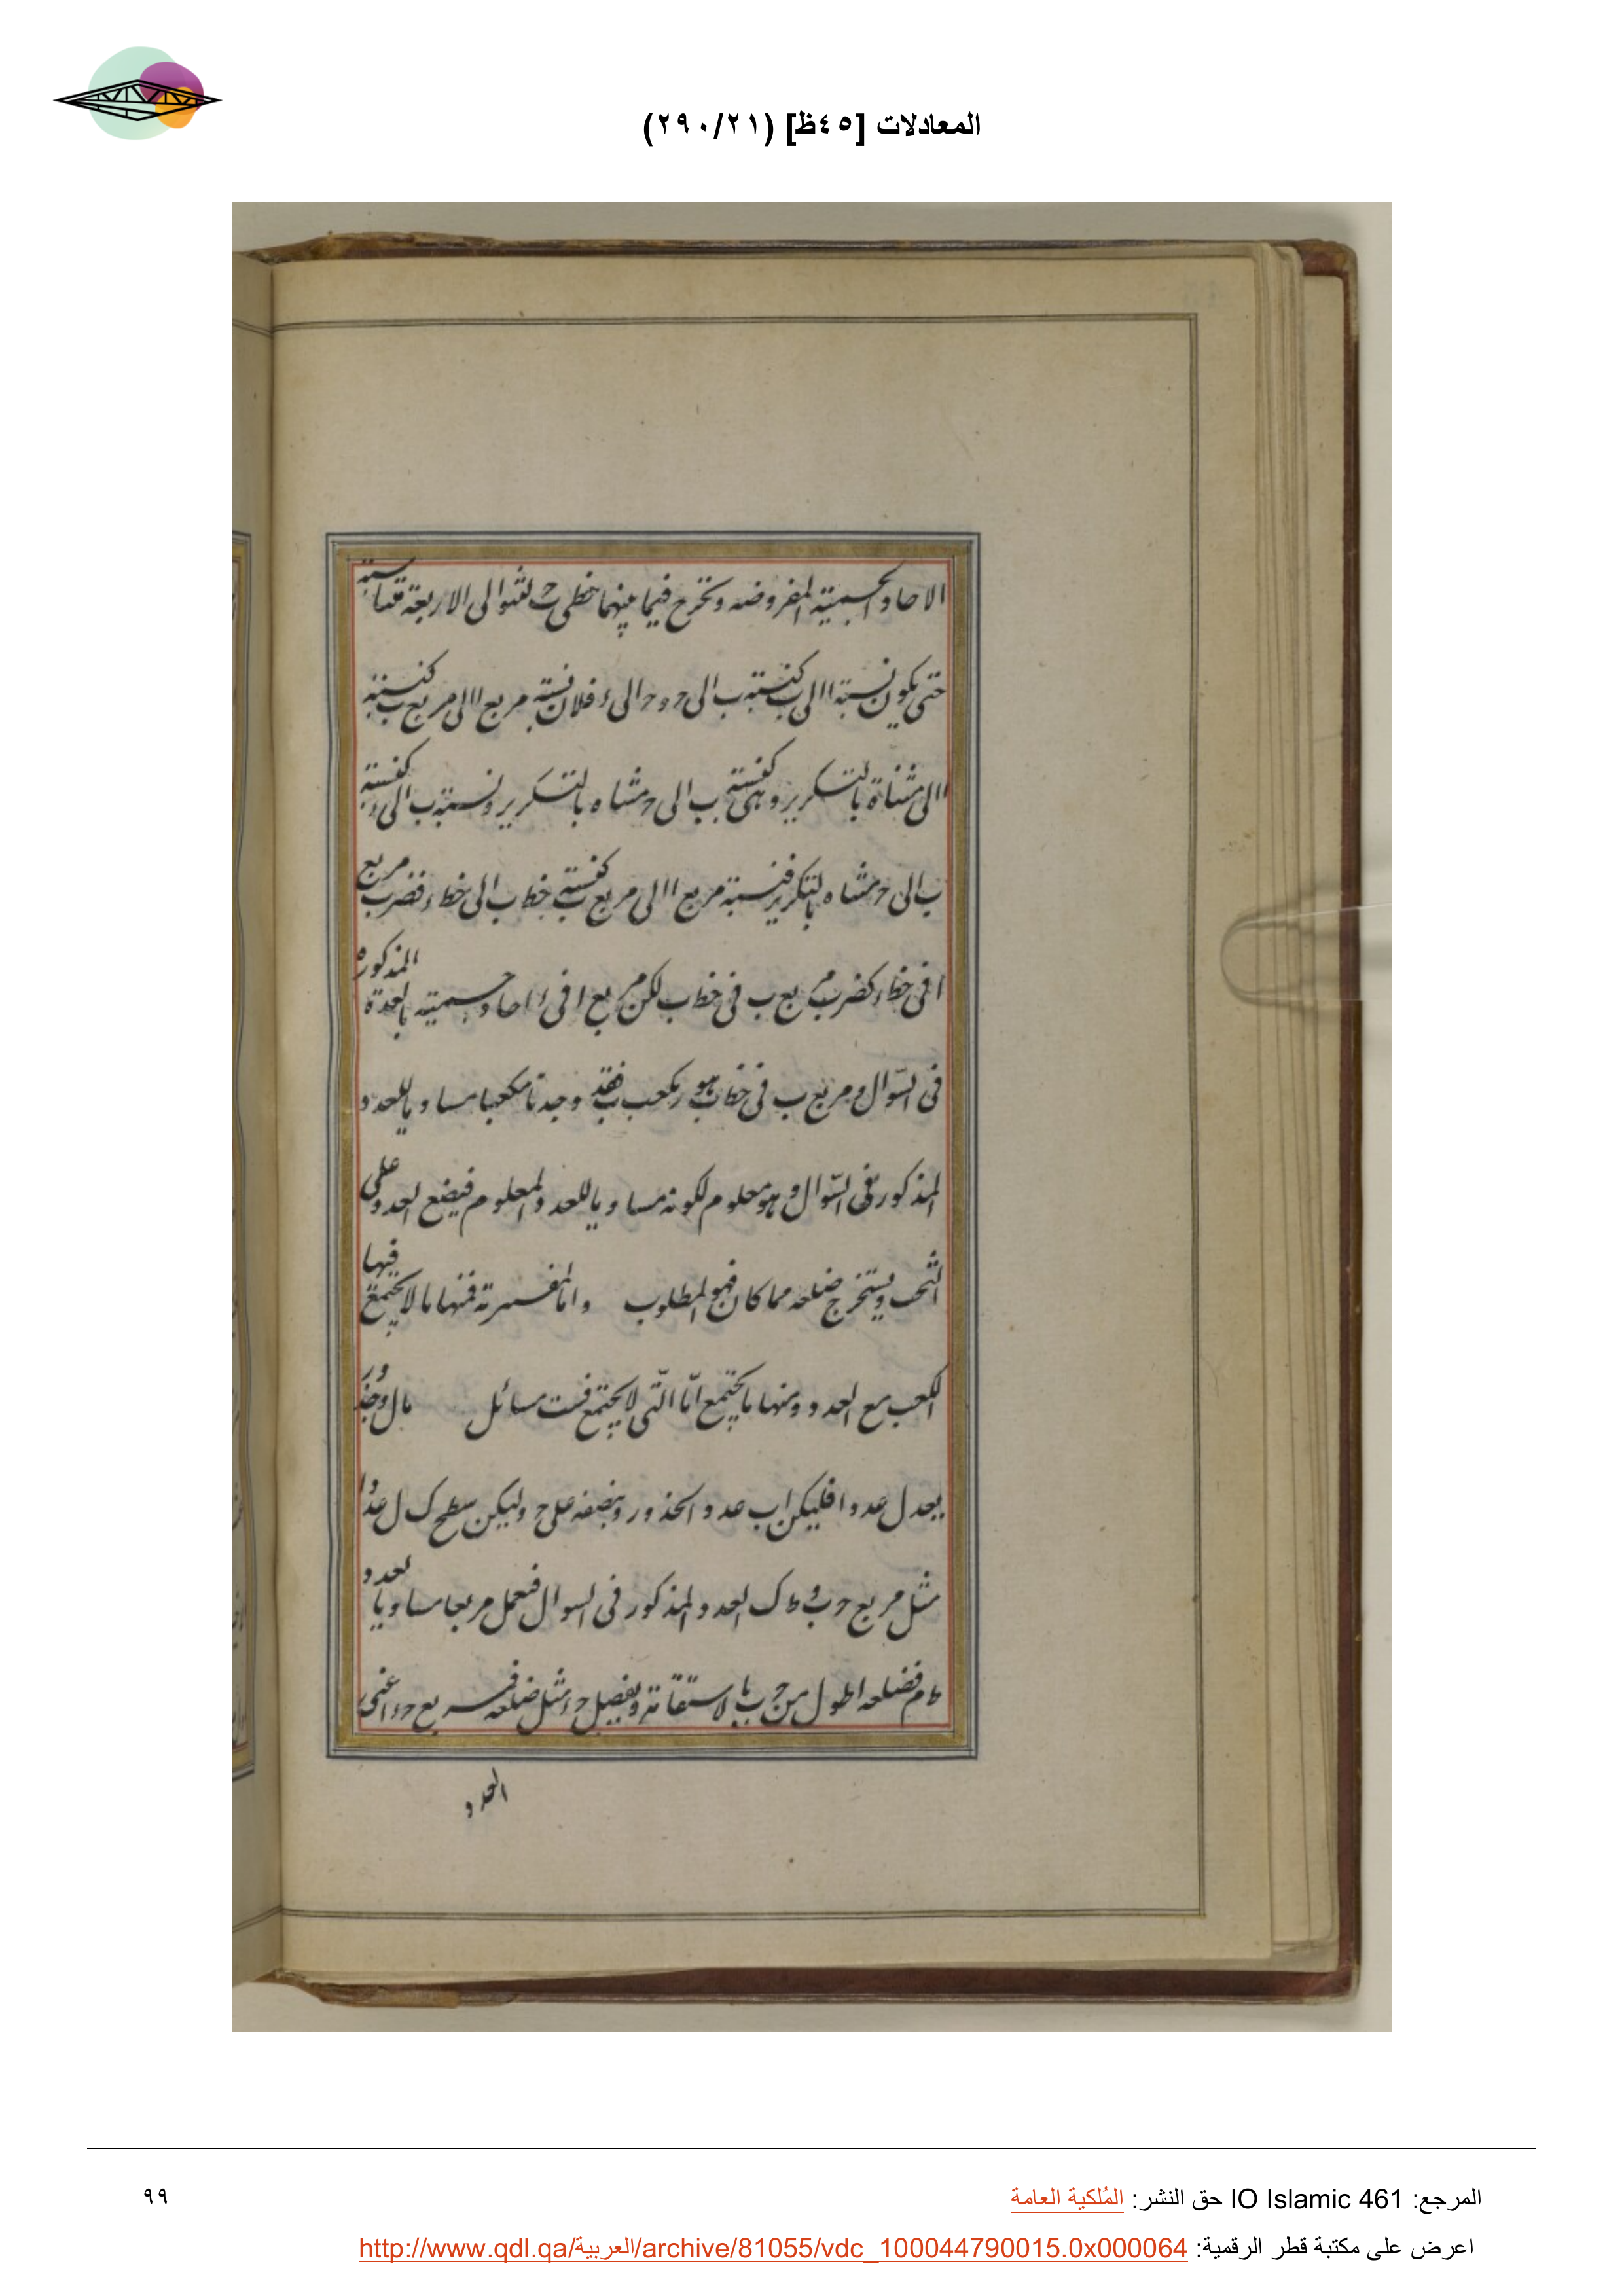 المعادلات [٤٥ظ] (٢٩٠/٢١)
الاحاد الجسمية المفروضه ونخرج فيما بينهما خطى ب ح لتتوالى الاربعة متناسبة
حتى يكون نسبة ا الى ب كنسبة ب الى ح و ح الى ء فلان نسبة مربع ا الى مربع ب كنسبة
ا الى ب مثناة بالتكرير وهى كنسبة ب الى ح مثناه بالتكرير ونسبة ب الى ء كنسبة
ب الى ح مثناه بالتكرير فنسبة مربع ا الى مربع ب كنسبة خط ب الى خط ء فضرب مربع
ا فى خط ء كضرب مربع ب فى خط ب لكن مربع ا فى ء احاد جسمية بالعدة المذكوره
فى السؤال ومربع ب فى خط ب هو مكعب ب فقد وجدنا مكعبا مساويا للعدد
المذكور فى السؤال وهو معلوم لكونه مساويا للعدد المعلوم فيضع العدد على
التخت ويستخرج ضلعه مما كان فهو المطلوب واما المفسرته فمنها ما لا يجتمع فيها
الكعب مع العدد ومنها ما يجتمع امّا الّتى لا يجتمع فست مسائل مال وجذور
يعدل عددا فليكن ا ب عدد الجذور وبنصفه على ح وليكن سطح ك ل عددا
مثل مربع ح ب و ط ك العدد المذكور فى السوال فنعمل مربعا مساويا لعدد
ط م فضلعه اطول من ح ب بالاستقامة ويفصل ح ء مثل ضلعه فمربع ح ء اعنى
العدد
المرجع: IO Islamic 461 حق النشر: المُلكية العامة
٩٩
اعرض على مكتبة قطر الرقمية: http://www.qdl.qa/العربية/archive/81055/vdc_100044790015.0x000064